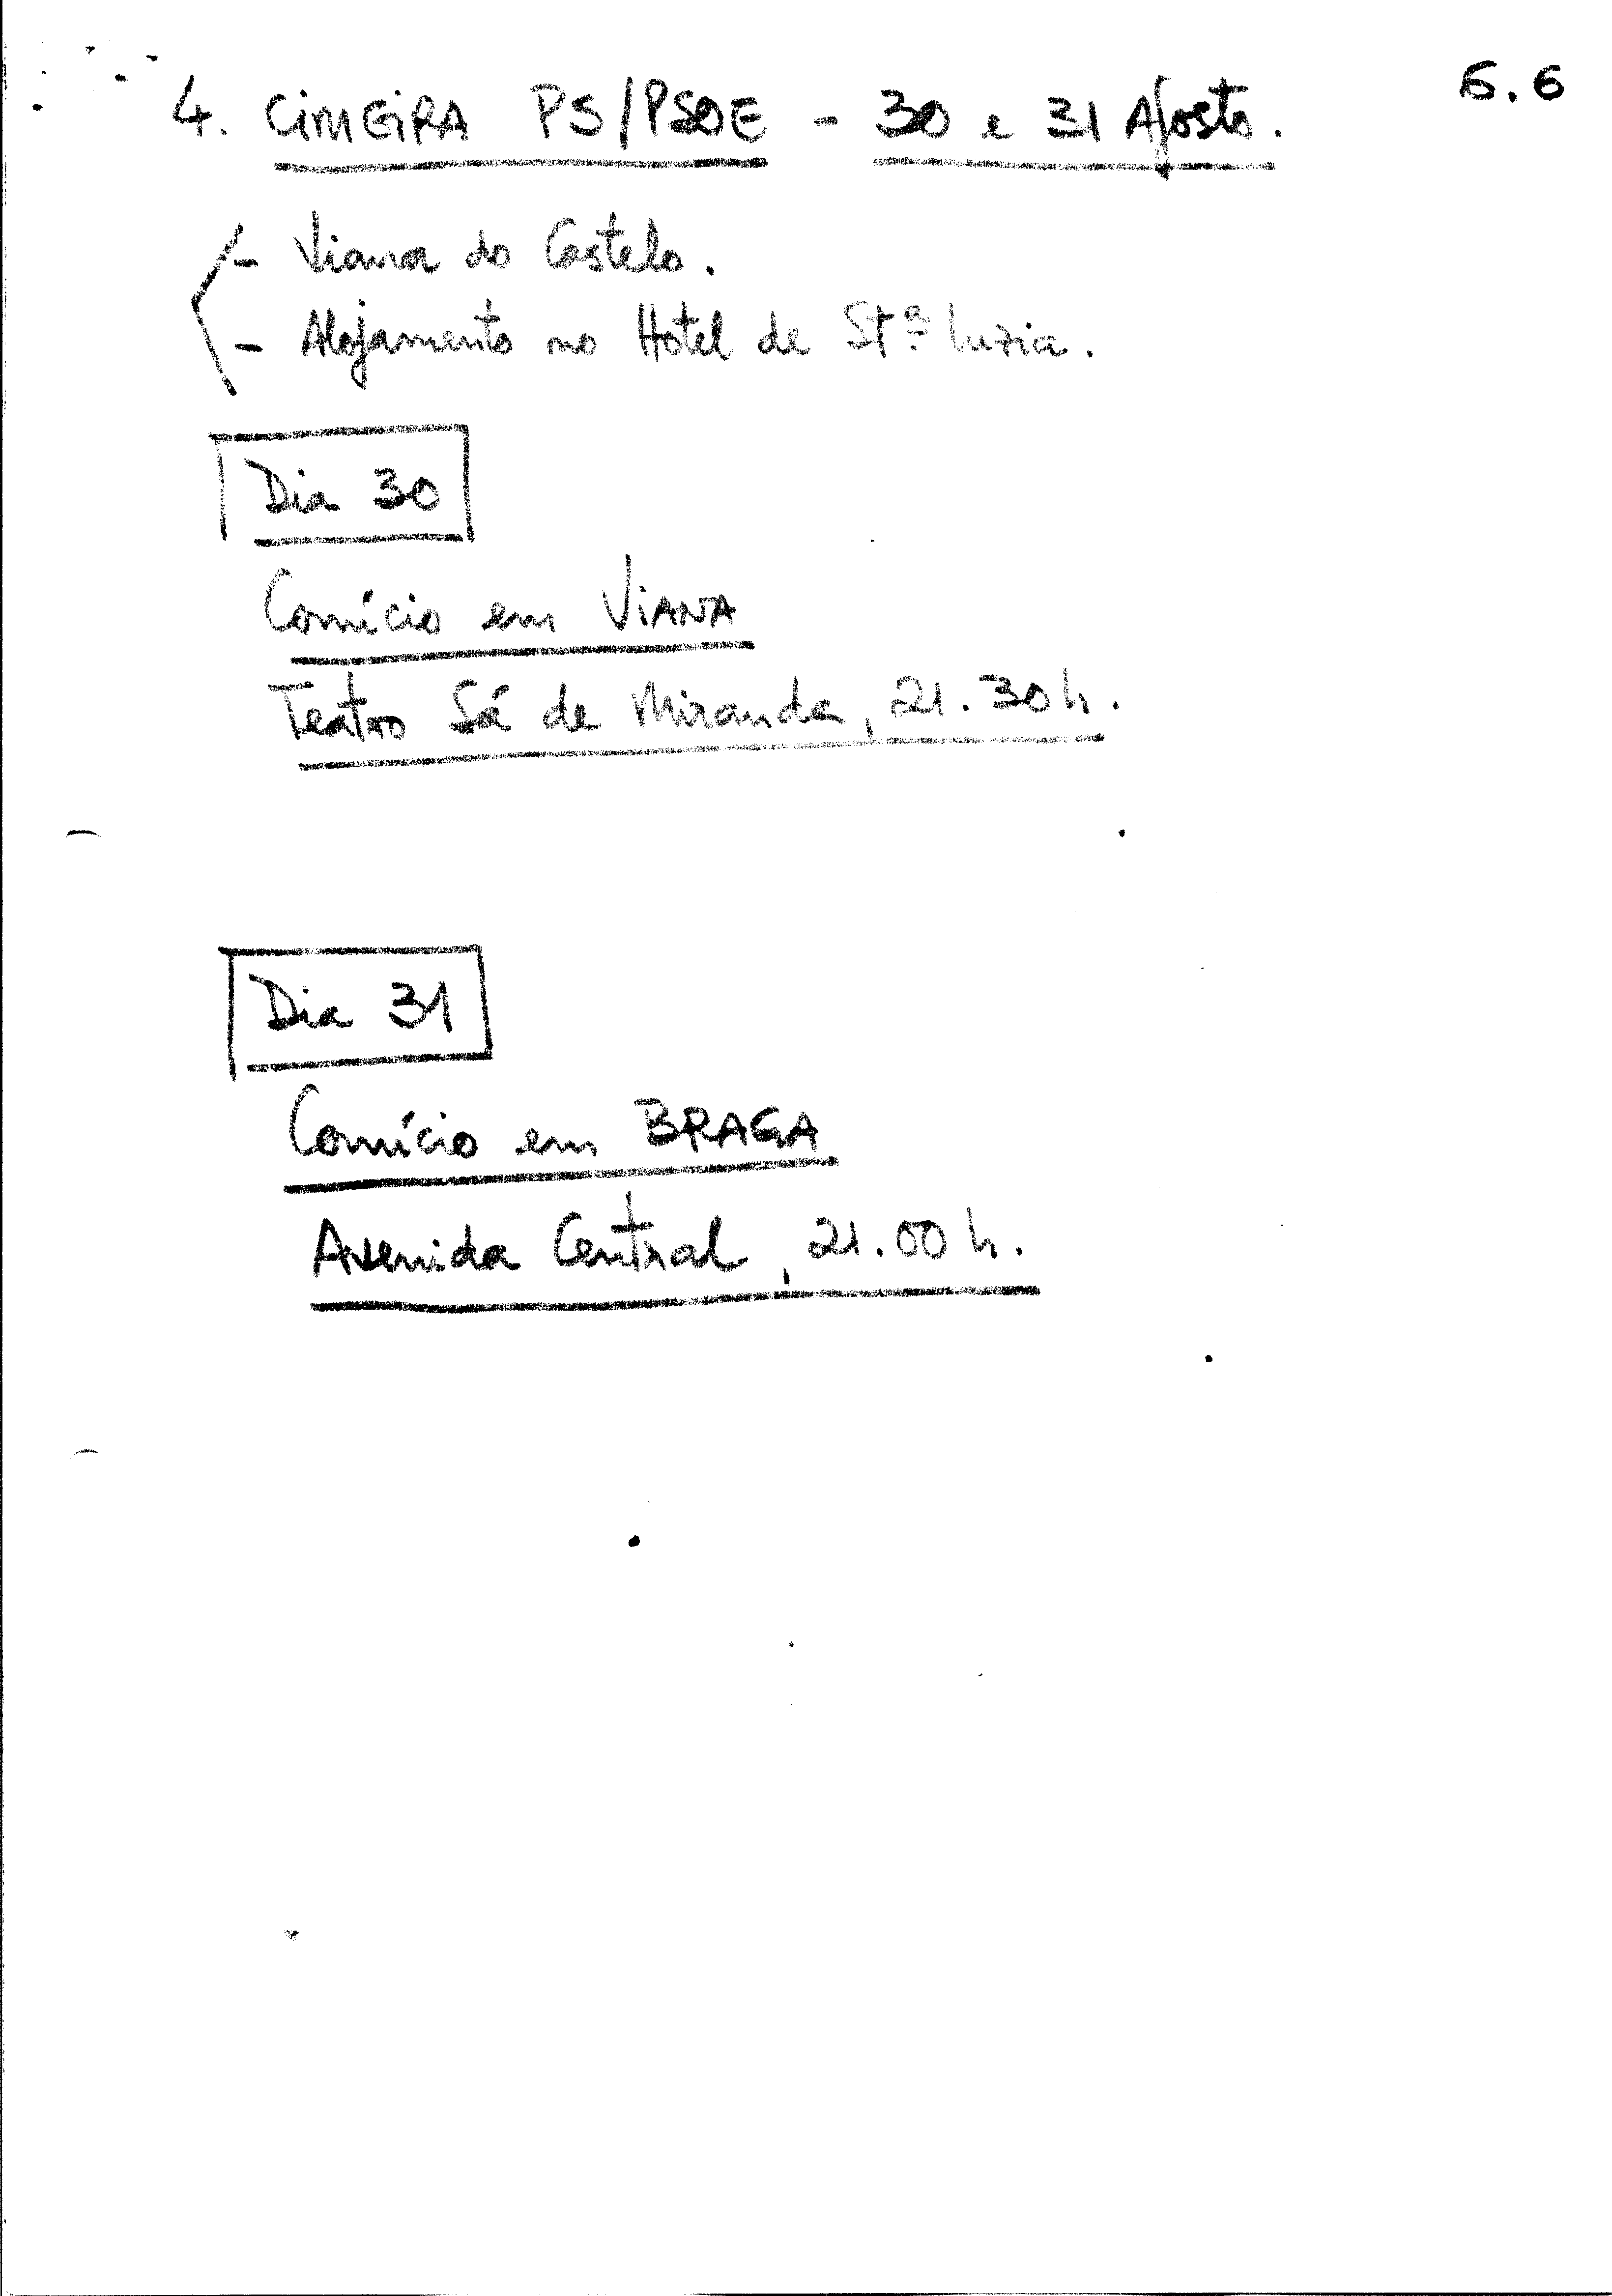 6.6
4. CIMEIRA PS/PSOE - 30 e 31 Agosto.
- Viana do Castelo.
- Alojamento no Hotel de Stª Luzia.
Dia 30
Comício em VIANA
Teatro Sá de Miranda, 21.30h.
Dia 31
Comício em BRAGA
Avenida Central, 21.00 h.